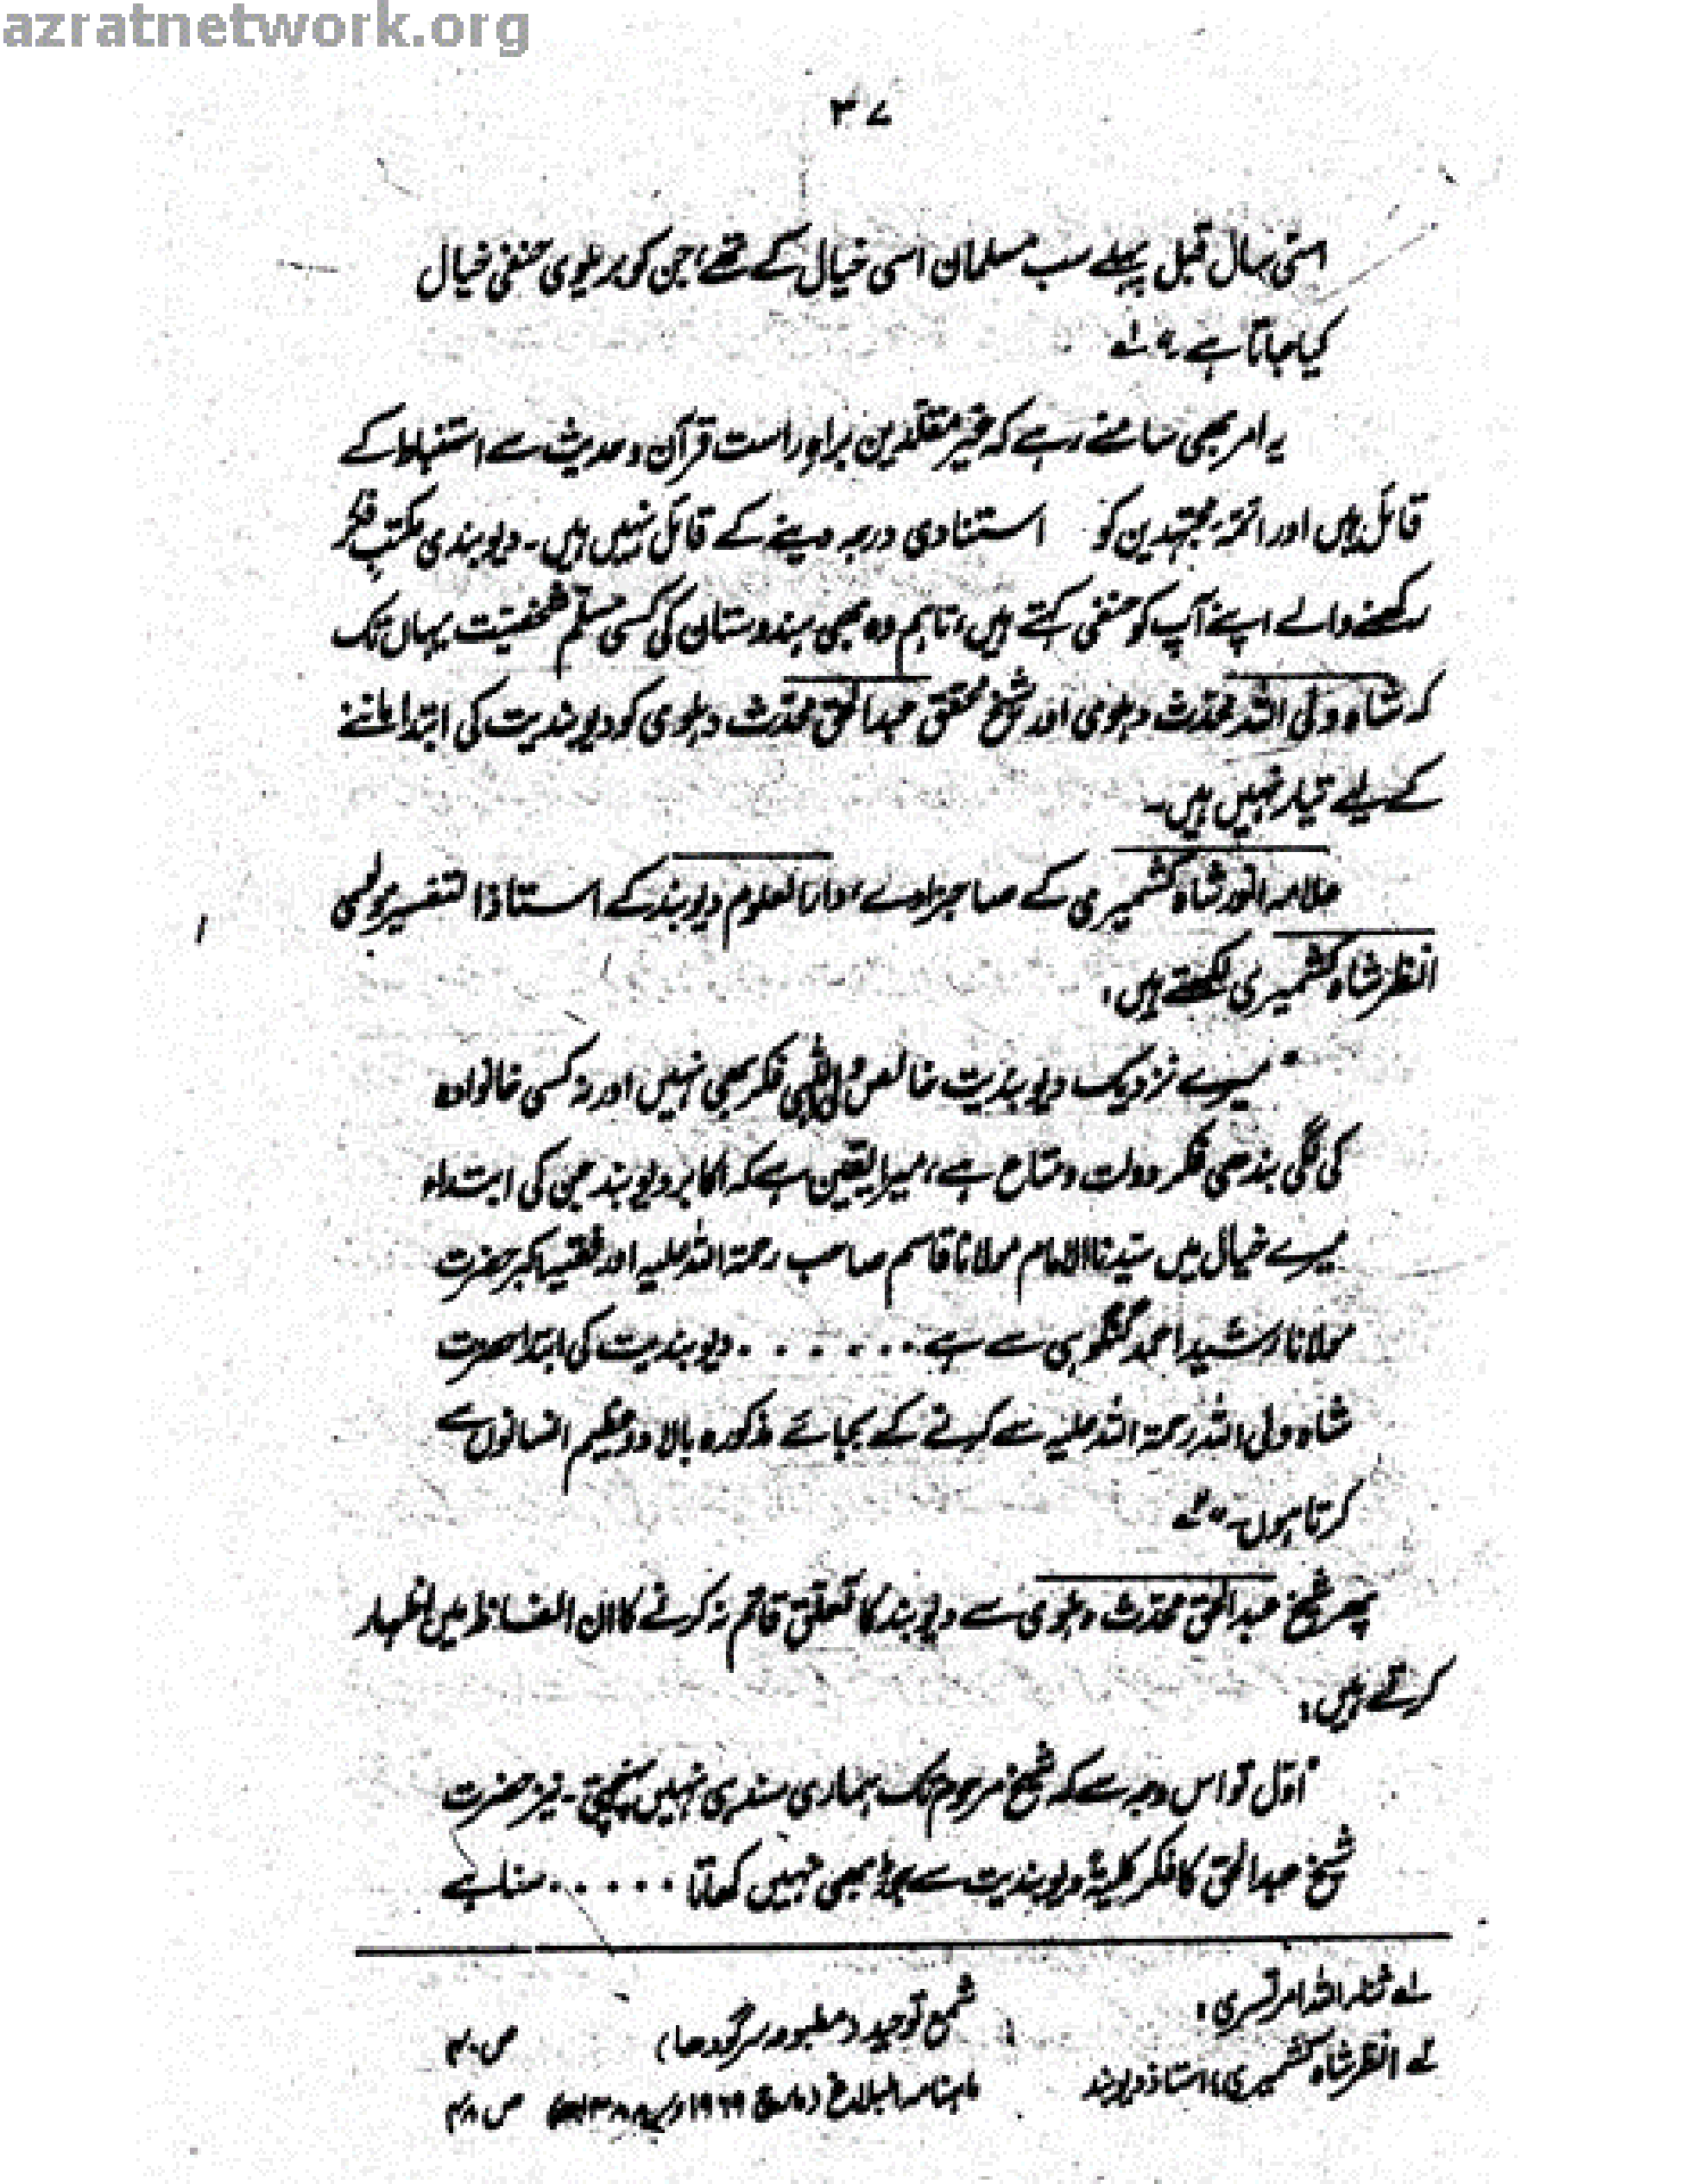 azratnetwork.org
۳۷
اسّی سال قبل پہلے سب مسلمان اسی خیال کے تھے، جن کو بریلوی حنفی خیال
کیا جاتا ہے۔" لہ
یہ امر بھی سامنے رہے کہ غیر مقلدین براہِ راست قرآن و حدیث سے استنباط کے
قائل ہیں اور ائمۂ مجتہدین کو استنادی درجہ دینے کے قائل نہیں ہیں۔ دیوبندی مکتبِ فکر
رکھنے والے اپنے آپ کو حنفی کہتے ہیں، تاہم وہ بھی ہندوستان کی کسی مسلّم شخصیت یہاں تک
کہ شاہ ولی اللہ محدّث دہلوی اور شیخ محقّق عبدالحق محدّث دہلوی کو دیوبندیت کی ابتدا ماننے
کے لیے تیار نہیں ہیں۔
علامہ انور شاہ کشمیری کے صاحبزادے، دارالعلوم دیوبند کے استاذ التفسیر مولوی
انظر شاہ کشمیری لکھتے ہیں:
"میرے نزدیک دیوبندیت خالص ولی اللّٰہی فکر بھی نہیں اور نہ کسی خانوادہ
کی لگی بندھی فکر دولت و متاع ہے، میرا یقین ہے کہ اکابرِ دیوبند جن کی ابتداء
میرے خیال میں سیّدنا الامام مولانا قاسم صاحب رحمۃ اللہ علیہ اور فقیہِ اکبر حضرت
مولانا رشید احمد گنگوہی سے ہے ....... دیوبندیت کی ابتدا حضرت
شاہ ولی اللہ رحمۃ اللہ علیہ سے کرنے کے بجائے مذکورہ بالا دو عظیم انسانوں سے
کرتا ہوں۔" ۲ہ
پھر شیخ عبدالحق محدّث دہلوی سے دیوبند کا تعلّق قائم نہ کرنے کا ان الفاظ میں اظہار
کرتے ہیں:
"اوّل تو اس وجہ سے کہ شیخ مرحوم تک ہماری سند ہی نہیں پہنچتی۔ نیز حضرت
شیخ عبدالحق کا فکر کلیۃً دیوبندیت سے جوڑ بھی نہیں کھاتا ...... سنا ہے
لہ ثناء اللہ امرتسری: شمع توحید (مطبوعہ سرگودھا) ص ۴۰
۲ہ انظر شاہ کشمیری، استاذ دیوبند ماہنامہ البلاغ (مارچ ۱۹۶۹ء / ۱۳۸۸ھ) ص ۴۸